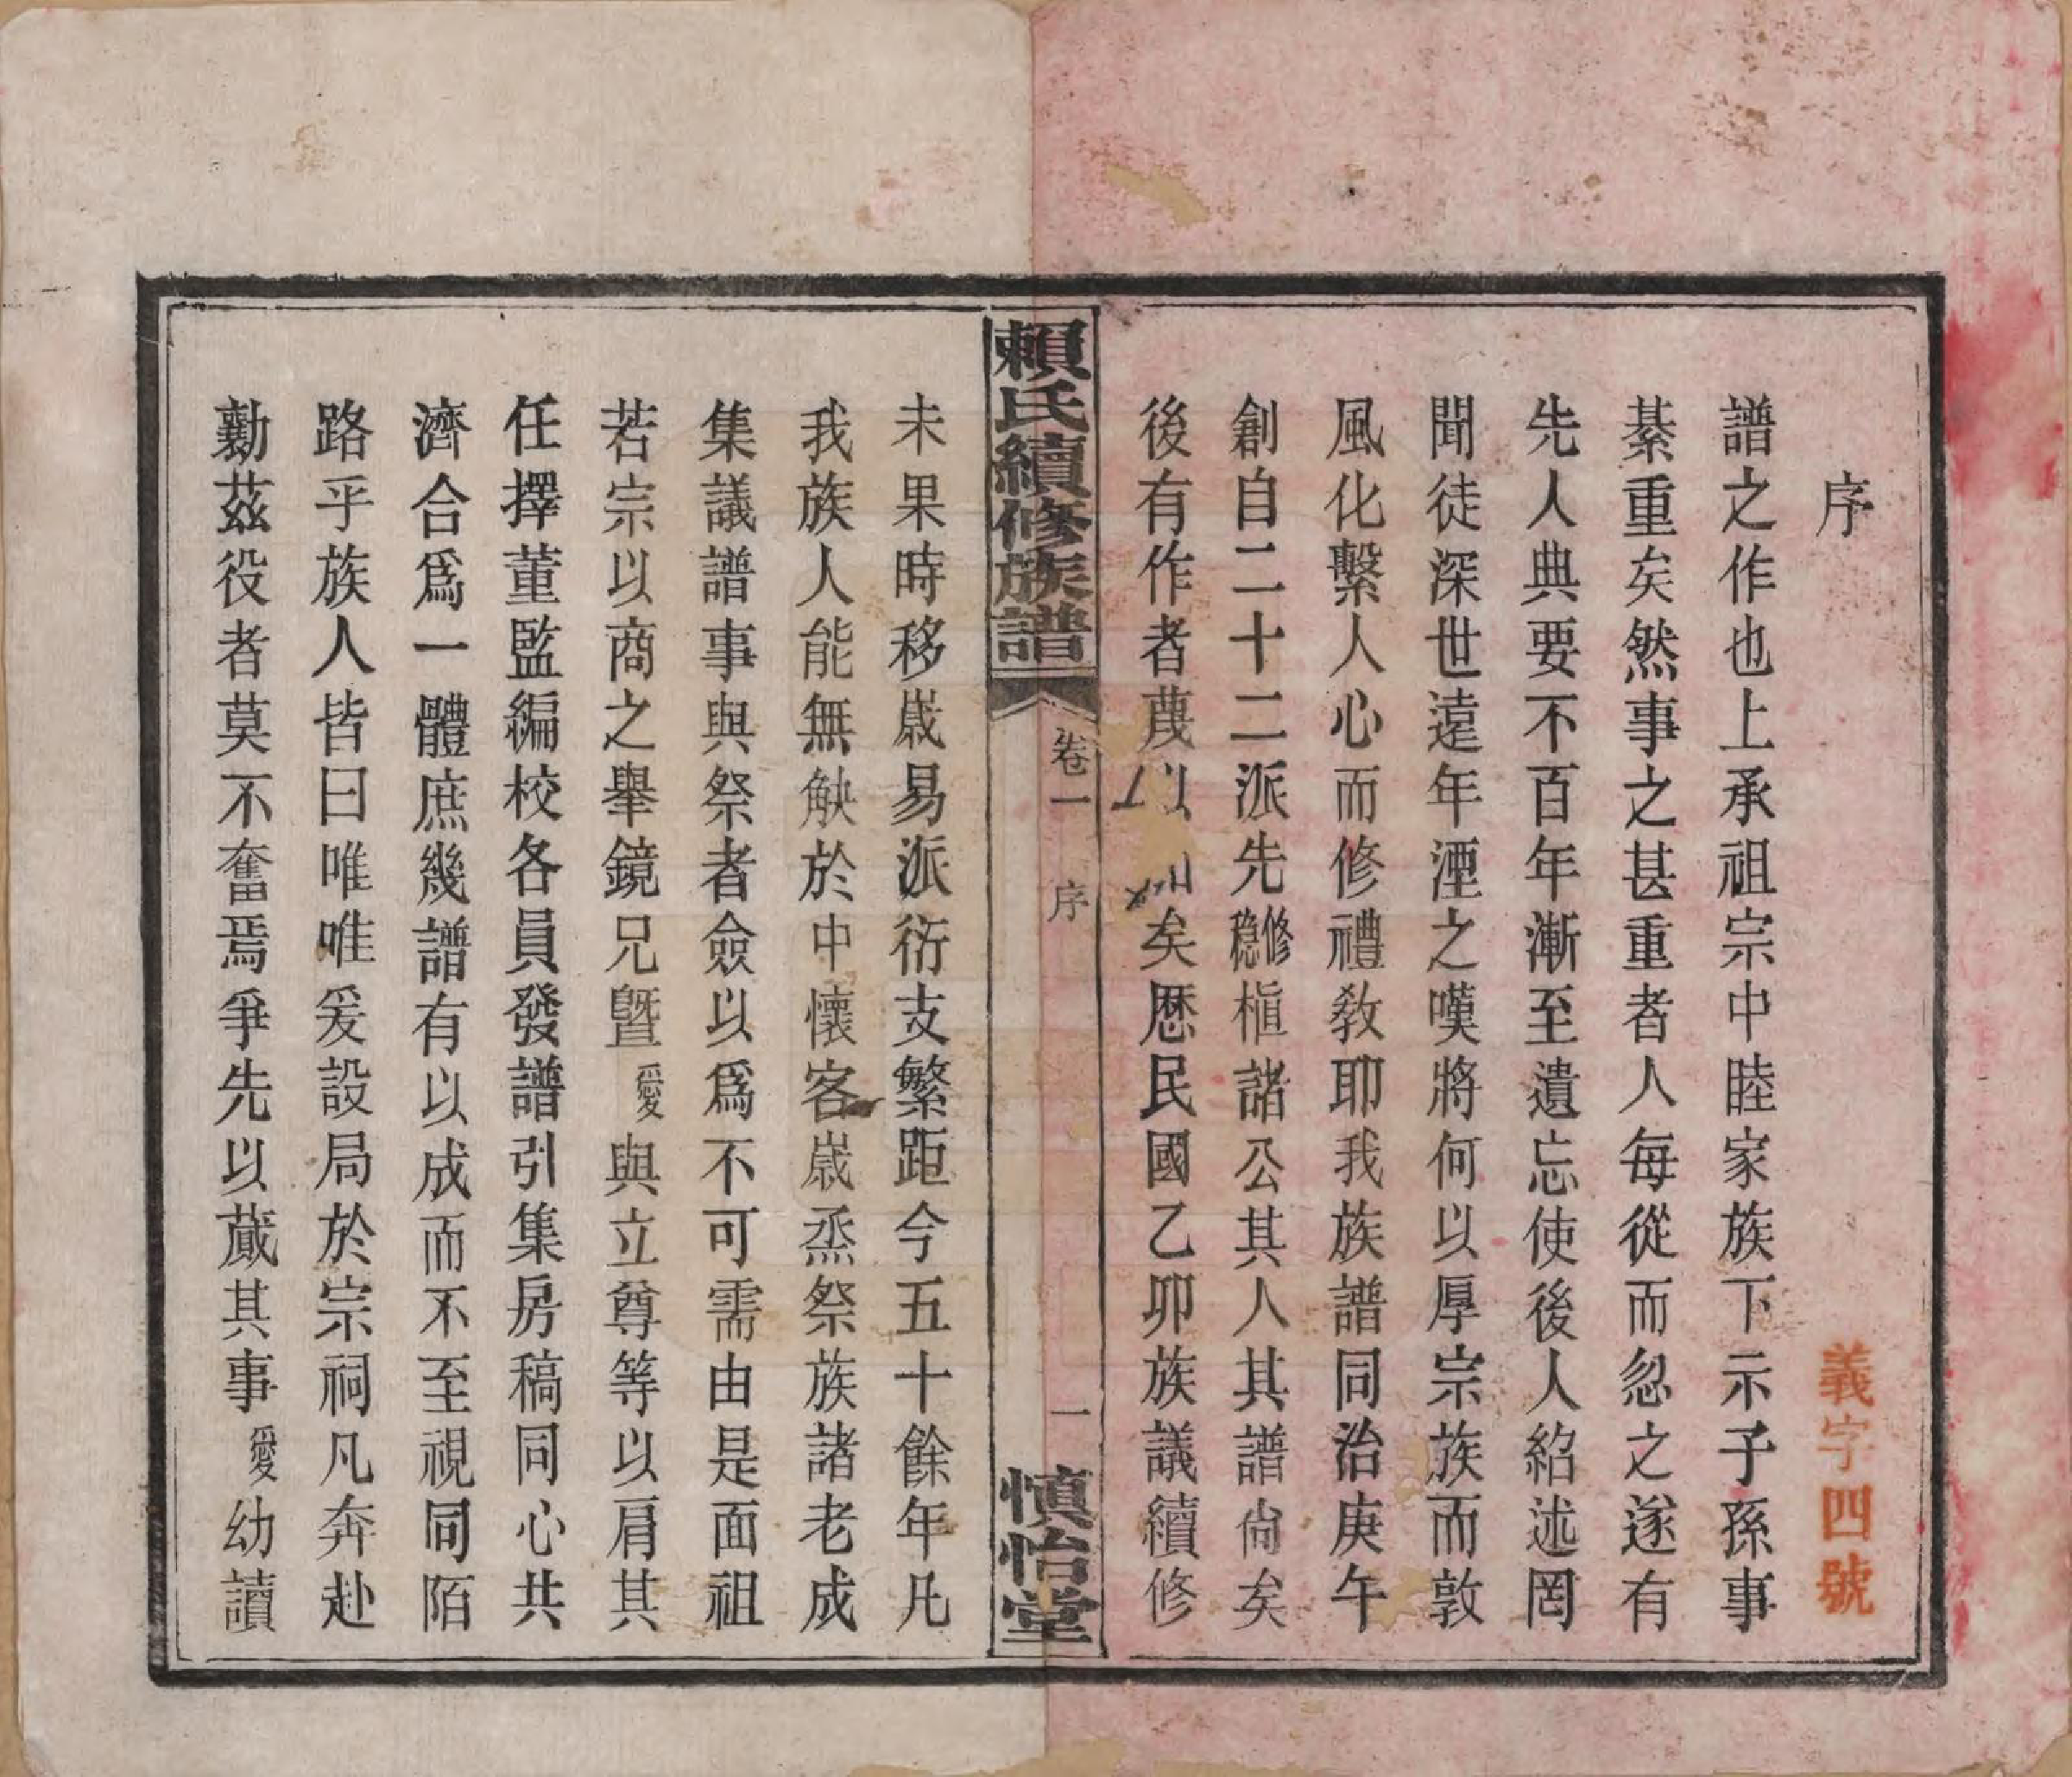 序
義字四號
譜之作也上承祖宗中睦家族下示子孫事
綦重矣然事之甚重者人每從而忽之遂有
先人典要不百年漸至遺忘使後人紹述罔
聞徒深世遠年湮之嘆將何以厚宗族而敦
風化繫人心而修禮教耶我族譜同治庚午
創自二十二派先修穩植諸公其人其譜尙矣
後有作者蔑以矣歷民國乙卯族議續修
賴氏續修族譜
卷一
序
一
慎怡堂
未果時移歲易派衍支繁距今五十餘年凡
我族人能無觖於中懷客歲烝祭族諸老成
集議譜事與祭者僉以爲不可需由是面祖
若宗以商之舉鏡兄曁愛與立尊等以肩其
任擇董監編校各員發譜引集房稿同心共
濟合爲一體庶幾譜有以成而不至視同陌
路乎族人皆曰唯唯爰設局於宗祠凡奔赴
勷茲役者莫不奮焉爭先以蕆其事愛幼讀